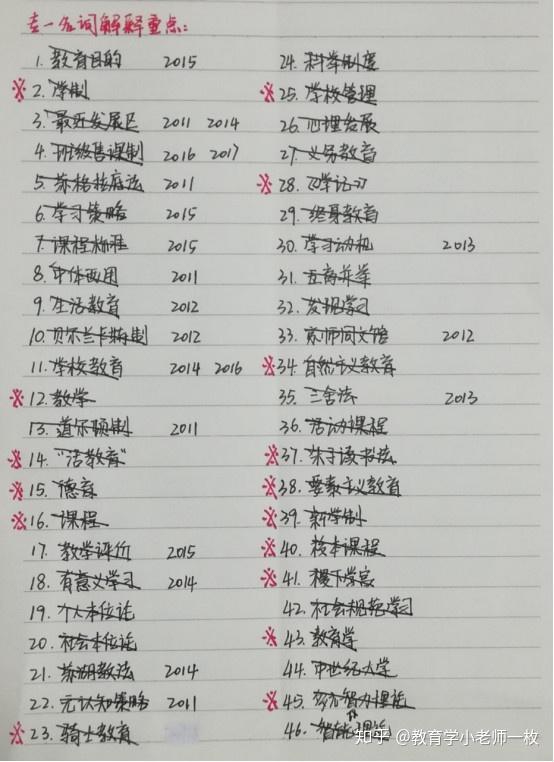 专一名词解释重点:
1. 教育目的 2015
※ 2. 学制
3. 最近发展区 2011 2014
4. 班级授课制 2016 2017
5. 苏格拉底法 2011
6. 学习策略 2015
7. 课程标准 2015
8. 中体西用 2011
9. 生活教育 2012
10. 贝尔兰卡斯特制 2012
11. 学校教育 2014 2016
※ 12. 教学
13. 道尔顿制 2011
※ 14. "活教育"
※ 15. 德育
※ 16. 课程
17. 教学评价 2015
18. 有意义学习 2014
19. 个人本位论
20. 社会本位论
21. 苏湖教法 2014
22. 元认知策略 2011
※ 23. 骑士教育
24. 科举制度
※ 25. 学校管理
26. 心理发展
27. 义务教育
※ 28. 《学记》
29. 终身教育
30. 学习动机 2013
31. 五育并举
32. 发现学习
33. 京师同文馆 2012
※ 34. 自然主义教育
35. 三舍法 2013
36. 活动课程
※ 37. 朱子读书法
※ 38. 要素主义教育
※ 39. 新学制
※ 40. 校本课程
※ 41. 稷下学宫
42. 社会规范学习
※ 43. 教育学
44. 中世纪大学
※ 45. 多元智力理论
46. 智能理论
知乎 @教育学小老师一枚